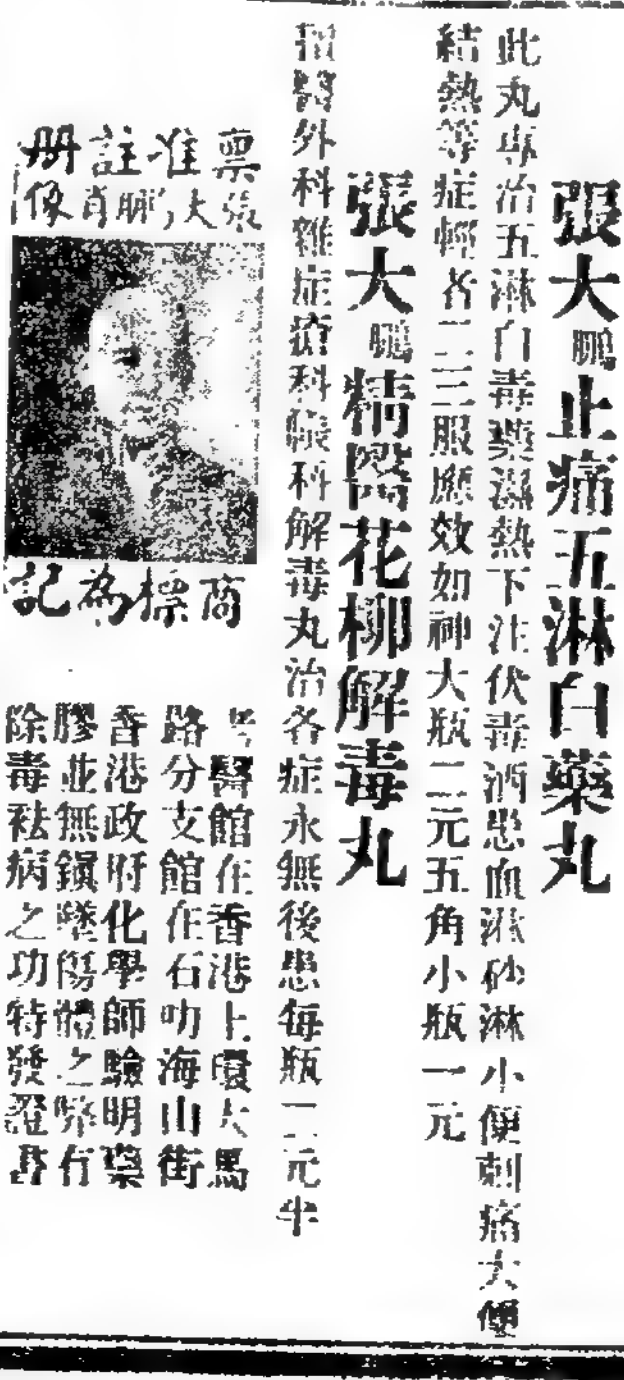 張大鵬止痛五淋白藥丸
此丸專治五淋白毒藥濕熱下注伏毒酒患血淋砂淋小便刺痛大便
結熱等症輕者二三服應效如神大瓶二元五角小瓶一元
張大鵬精醫花柳解毒丸
醫外科雜症科科解毒丸治各症永無後患每瓶二元半
稟准註冊
張大鵬肖像
商標為記
醫館在香港上環大馬
路分支館在石叻海山街
香港政府化學師驗明藥
膠並無鏹墜傷體之弊有
除毒祛病之功特發證書